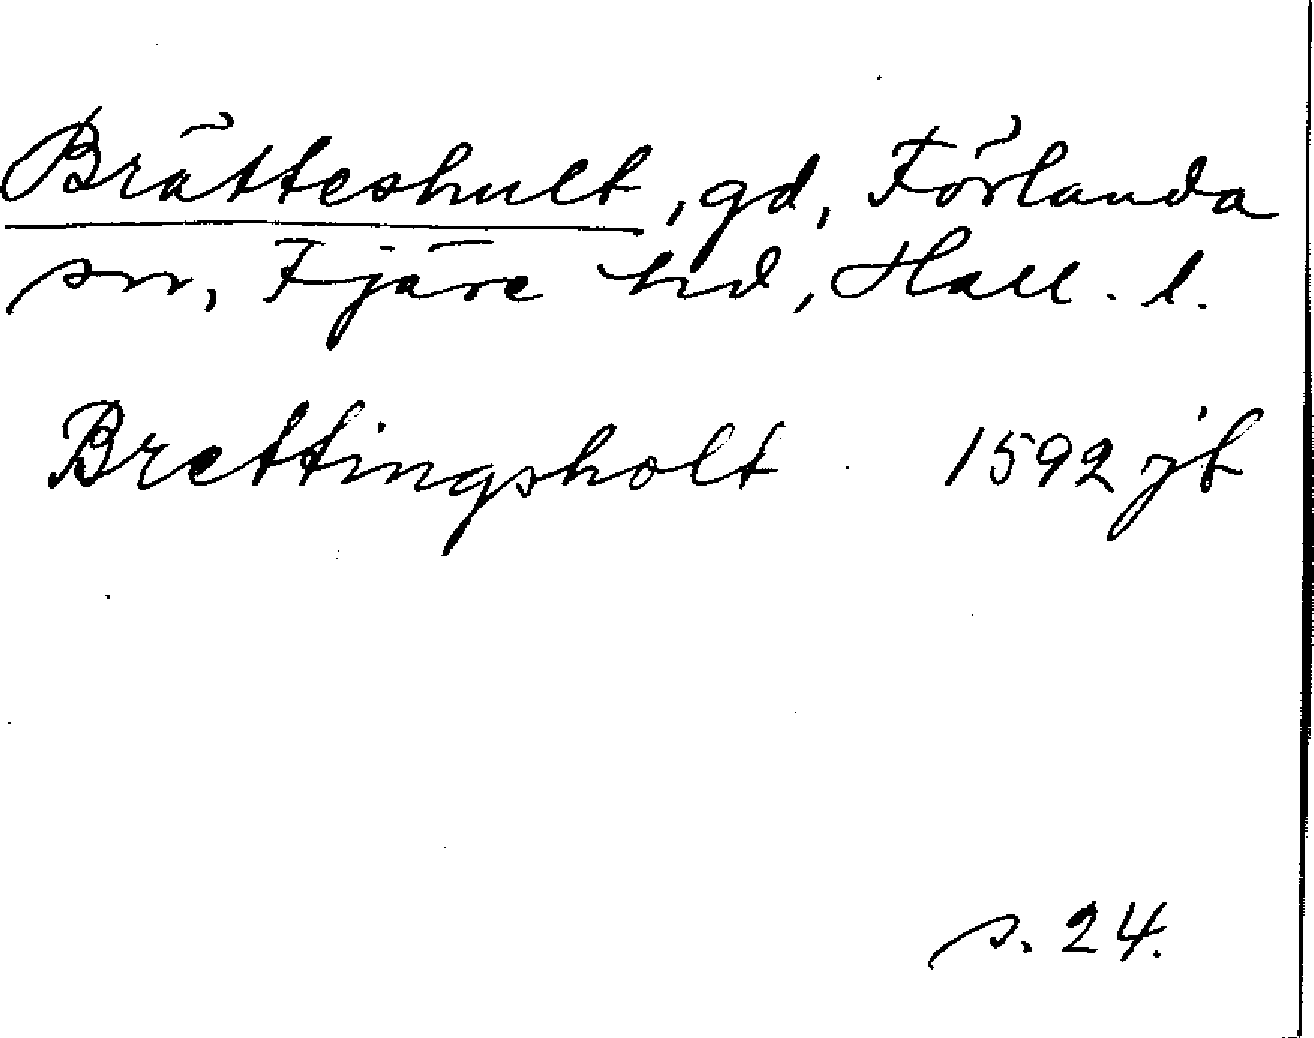 Brätteshult, gd, Förlanda
sn, Fjäre hd, Hall. l.
Brettingsholt 1592 jb
s. 24.